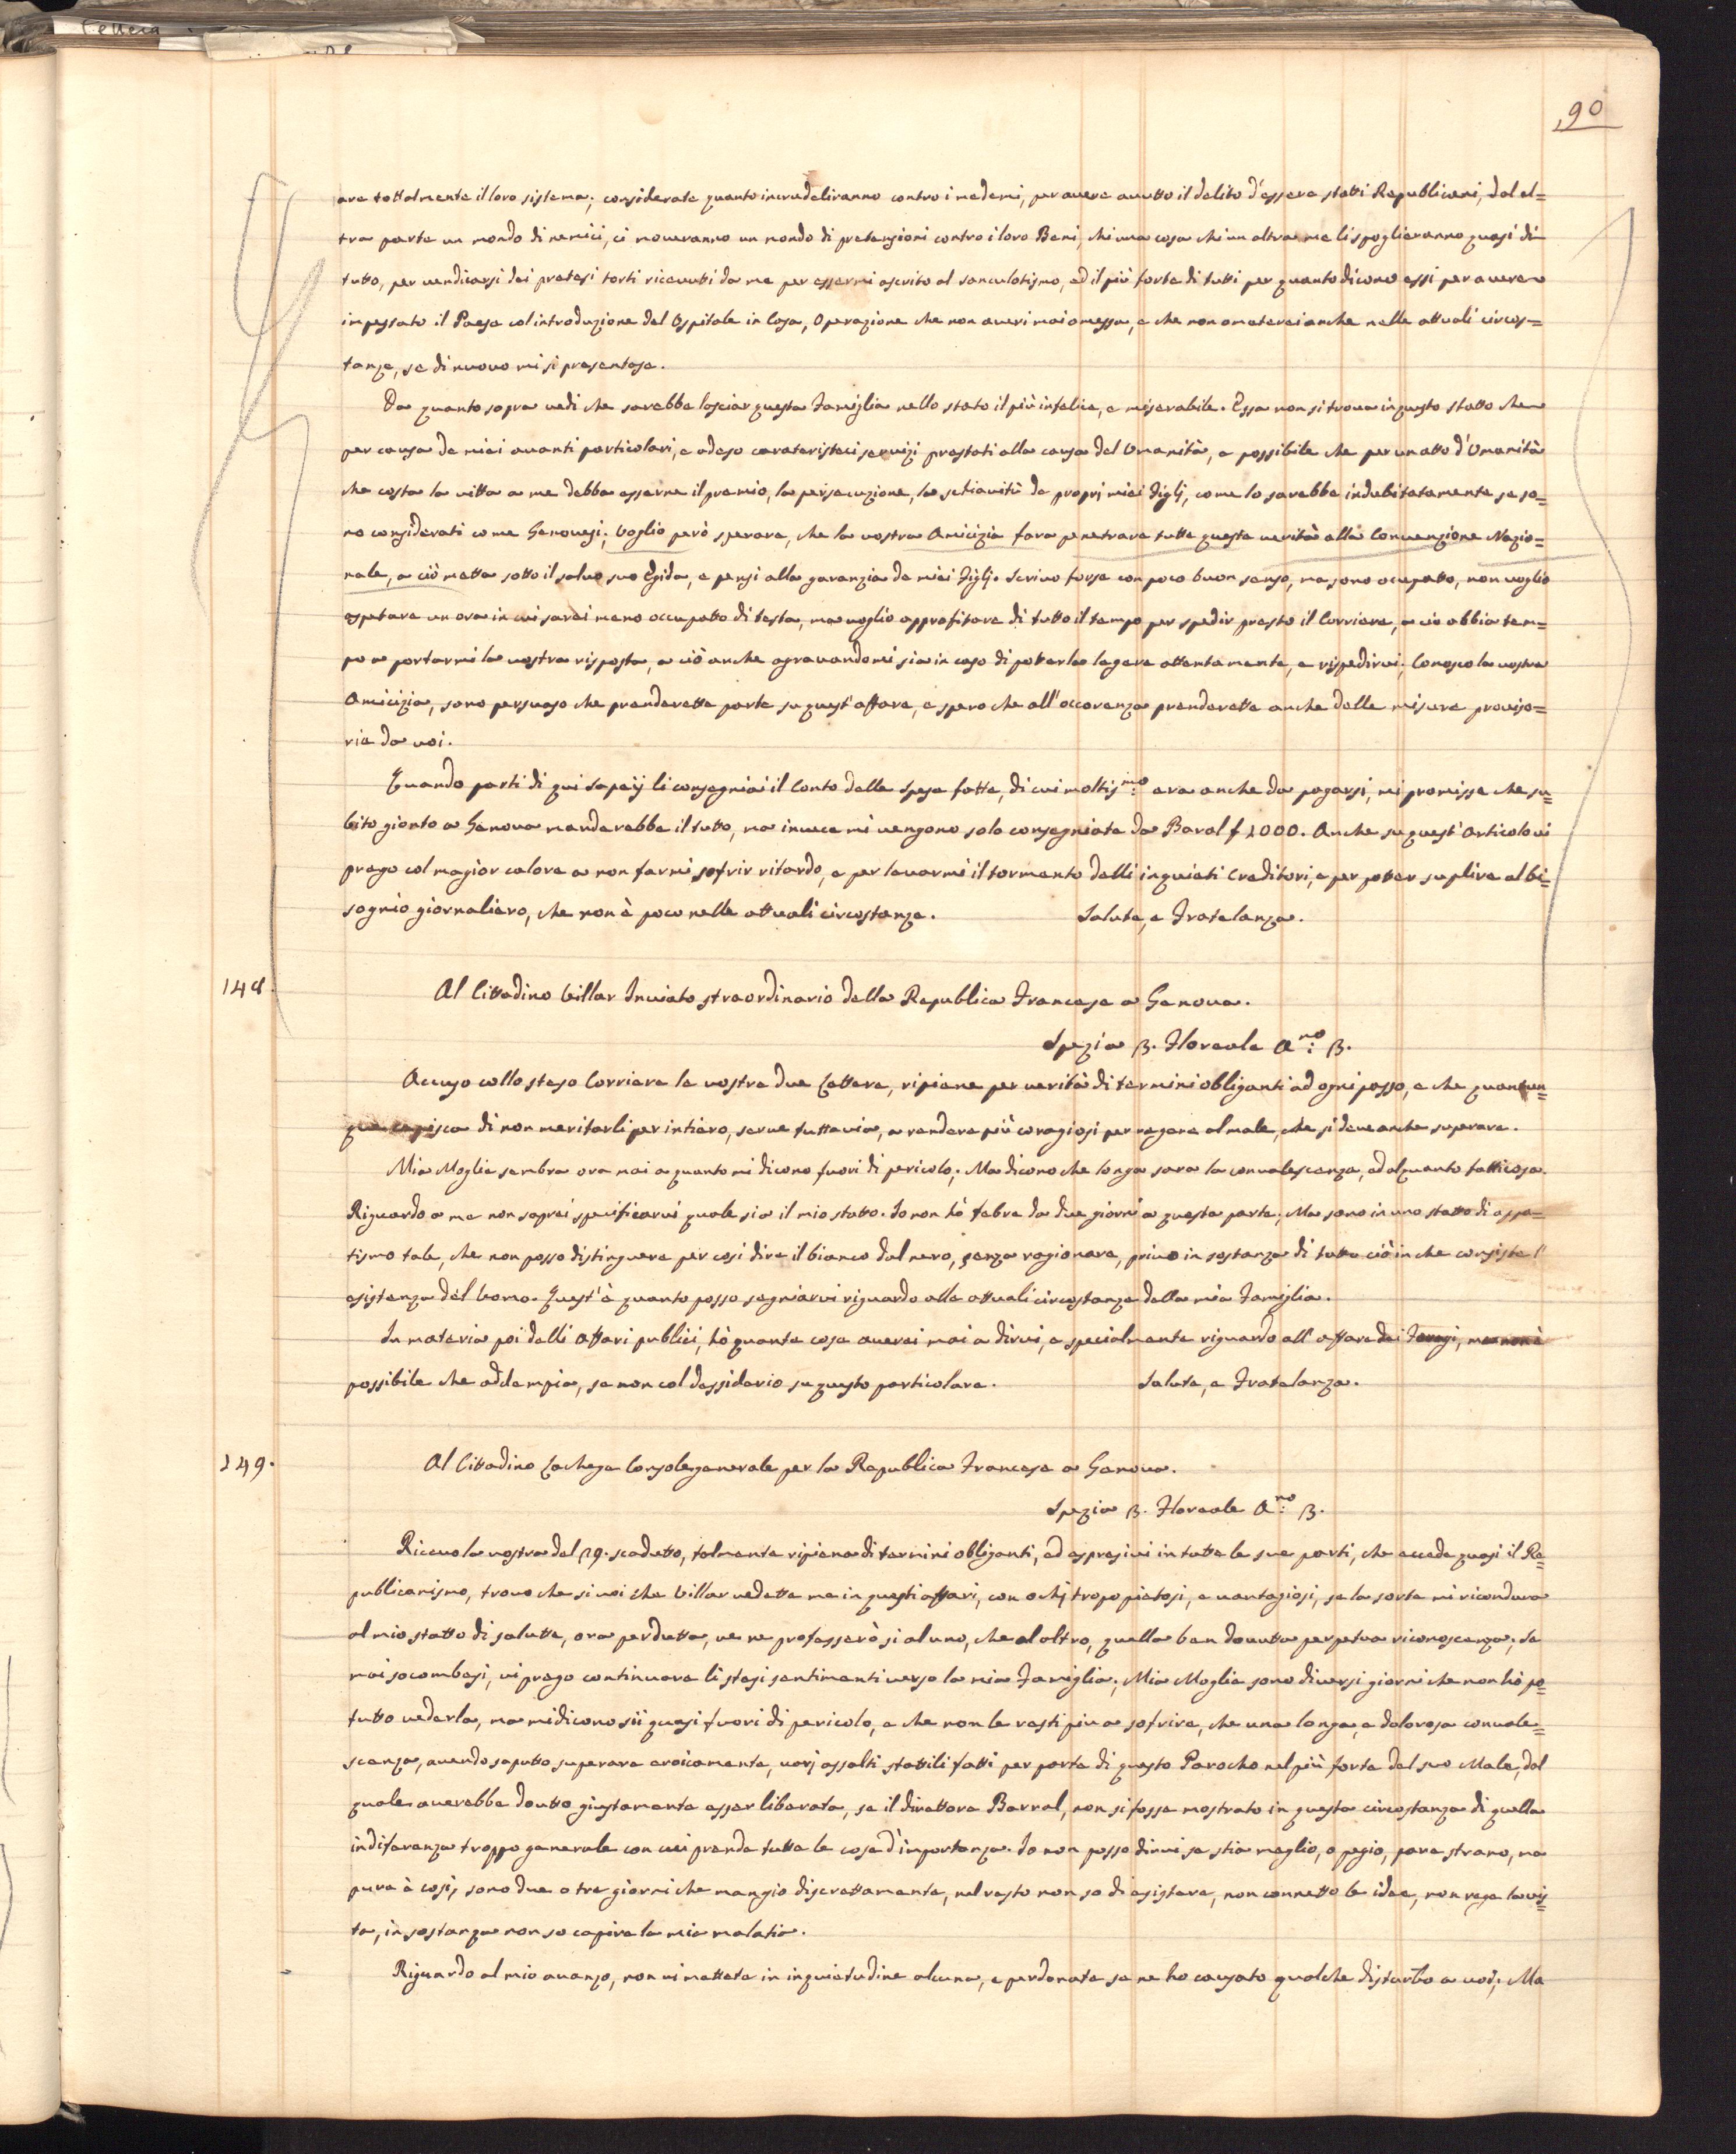 90
are tottalmente il loro sistema; considerate quanto incrudeliranno contro i medemi, per avere avutto il delito d'essere statti Republicani, dal al=
tra parte un mondo di nemici, ci moveranno un mondo di pretensioni contro i loro Beni, chi una cosa chi un altra me li spoglieranno quasi di
tutto, per vendicarsi dei pretesi torti ricevutti da me per essermi ascrito al sanculotismo, ed il più forte di tutti per quanto dicono essi per avere
impestato il Paese col introduzione del Ospitale in Casa, Operazione che non averei mai omessa, e che non ometerei anche nelle attuali circos=
tanze, se di nuovo mi si presentase.
Da quanto sopra vedi che sarebbe lasciar questa Famiglia nello stato il più infelice, e miserabile. Essa non si trova in questo statto che
per causa de miei avanti particolari, e adeso carateristeci servizi prestati alla causa del Umanità, e possibile che per un atto d'Umanità
che costa la vitta a me debba esserne il premio, la persecuzione, la schiavitù de proprj miei Figlj, come lo sarebbe indubitatamente se so=
no considerati come Genovesi; Voglio però sperare, che la vostra Amicizia fara penetrare tutte queste verità alla Convenzione Nazio=
nale, a ciò metta sotto il salvo suo Egida, e pensi alla garanzia de miei Figlj. Scrivo forse con poco buon senso, ma sono ocupatto, non voglio
aspetare un ora in cui sarei meno occupatto di testa, ma voglio approfitare di tutto il tempo per spedir presto il Corriere, a ciò abbia tem=
po a portarmi la vostra risposta, a ciò anche agravandomi sia in caso di potterla legere attentamente, e rispedirvi; Conosco la vostra
Amicizia, sono persuaso che prenderette parte su quest'affare, e spero che all'occorenza prenderette anche delle misure proviso=
rie da voi.
Quando parti di qui Sapeij li consegniai il Conto delle spese fatte, di cui moltis.mo era anche da pagarsi, mi promisse che su=
bito gionto a Genova manderebbe il tutto, ma invece mi vengono solo consegniate da Baral f 2000. Anche su quest'articolo vi
prego col magior calore a non farmi sofrir ritardo, e per levarmi il tormento delli inquieti Creditori, e per potter suplire al bi=
sognio giornaliero, che non è poco nelle attuali circostanze. Salute, e Fratelanza.
148.
Al Cittadino Villar Inviato straordinario della Republica Francese a Genova.
Spezia 13. Floreale A.no 3.
Accuso collo steso Corriere le vostre due Lettere, ripiene per verità di termini obliganti ad ogni passo, e che quantun=
que capisca di non meritarli per intiero, serve tuttavia, a rendere più coragiosi per regere al male, che si deve anche superare.
Mia Moglie sembra ora mai a quanto mi dicono fuori di pericolo; Ma dicono che longa sara la convalescenza, ed alquanto fatticosa.
Riguardo a me non saprei specificarvi quale sia il mio statto. Io non hò febre da due giorni a questa parte; Ma sono in uno statto di appa=
tismo tale, che non posso distinguere per cosi dire il bianco dal nero, senza ragionare, privo in sostanza di tutto ciò in che consiste l'
esistenza del Uomo. Quest'è quanto posso segniarvi riguardo alle attuali circostanze della mia Famiglia.
In materia poi delli affari publici, hò quante cose averei mai a dirvi, e specialmente riguardo all'affare dei ma non è
possibile che addempia, se non col dessiderio su questo particolare. Salute, e Fratelanza.
149.
Al Cittadino Lacheze Console generale per la Republica Francese a Genova.
Spezia 13. Floreale A.no 3.
Ricevo la vostra del 29. scadutto, talmente ripiena di termini obliganti, ed espresivi in tutte le sue parti, che eccede quasi il Re=
publicanismo, trovo che si voi che Villar vedette me in questi affari, con ochj tropo pietosi, e vantagiosi, se la sorte mi ricondura
al mio statto di salutte, ora perdutta, ve ne professerò si al uno, che al altro, quella ben dovutta perpetua riconoscenza; Se
mai socombesi, vi prego continuare li stesi sentimenti verso la mia Famiglia; Mia Moglie sono diversi giorni che non hò po=
tutto vederla, ma mi dicono sii quasi fuori di pericolo, e che non le resti piu a sofrire, che una longa, e dolorosa convale=
scenza, avendo saputto superare eroicamente, varj assalti stattili fatti per parte di questo Parocho nel più forte del suo Male, dal
quale averebbe doutto giustamente esser liberata, se il direttore Barral, non si fosse mostrato in questa circostanza di quella
indiferanza troppo generale con cui prende tutte le cose d'importanza. Io non posso dirvi se stia meglio, o pegio, pare strano, ma
pure è cosi, sono due o tre giorni che mangio discrettamente, nel resto non so di esistere, non connetto le idee, non rege la vis=
ta, in sostanza non so capire la mia malatia.
Riguardo al mio avanzo, non vi mettete in inquietudine alcuna, e perdonate se ne ho causato qualche disturbo a voi; Ma